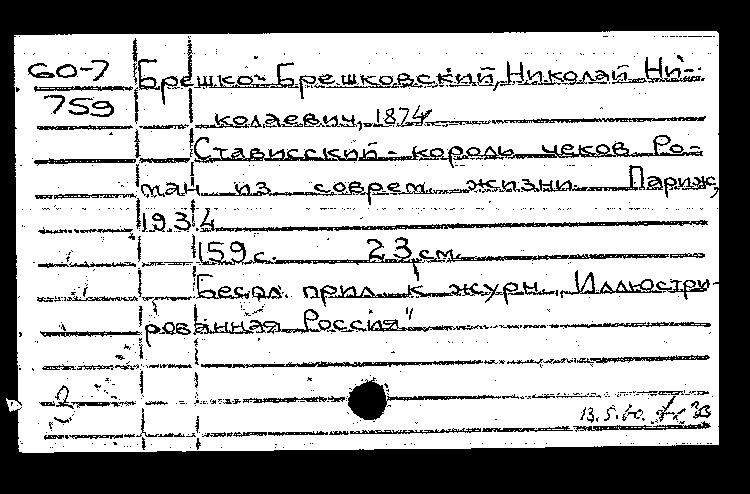 60-7 Брешко-Брешковский, Николай Ни-
759 колаевич, 1874
Стависский - король чеков. Ро-
ман из соврем. жизни. Париж,
1934
159 с. 23 см.
Беспл. прил. к журн. „Иллюстри-
рованная Россия"
13.5.60.